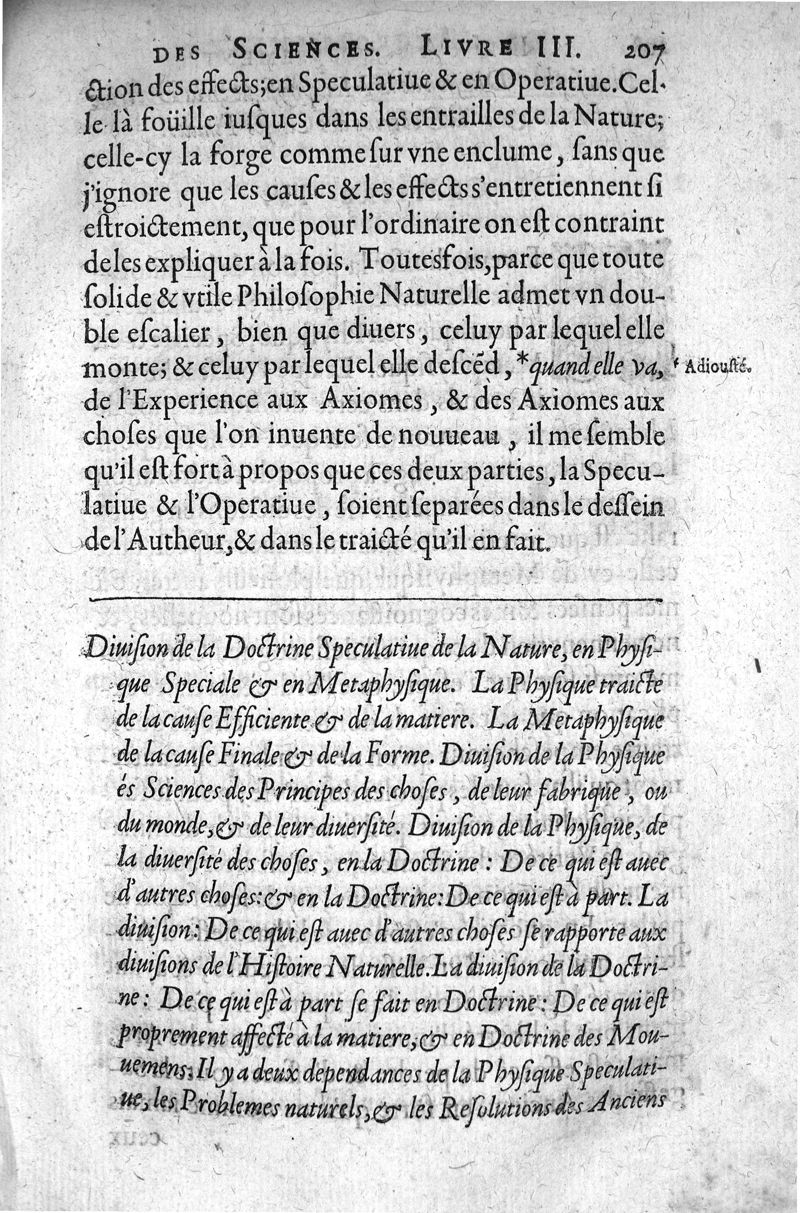 DES SCIENCES. LIVRE III. 207
ction des effects; en Speculatiue & en Operatiue. Cel-
le là foüille iuſques dans les entrailles de la Nature;
celle-cy la forge comme ſur vne enclume, ſans que
j'ignore que les cauſes & les effects s'entretiennent ſi
eſtroictement, que pour l'ordinaire on eſt contraint
de les expliquer à la fois. Toutesfois, parce que toute
ſolide & vtile Philoſophie Naturelle admet vn dou-
ble eſcalier, bien que diuers, celuy par lequel elle
monte; & celuy par lequel elle deſcẽd, *quand elle va, * Adiouſté.
de l'Experience aux Axiomes, & des Axiomes aux
choſes que l'on inuente de nouueau, il me ſemble
qu'il eſt fort à propos que ces deux parties, la Specu-
latiue & l'Operatiue, ſoient ſeparées dans le deſſein
de l'Autheur, & dans le traicté qu'il en fait.
Diuiſion de la Doctrine Speculatiue de la Nature, en Phyſi-
que Speciale & en Metaphyſique. La Phyſique traicte
de la cauſe Efficiente & de la matiere. La Metaphyſique
de la cauſe Finale & de la Forme. Diuiſion de la Phyſique
és Sciences des Principes des choſes, de leur fabrique, ou
du monde, & de leur diuerſité. Diuiſion de la Phyſique, de
la diuerſité des choſes, en la Doctrine: De ce qui eſt auec
d'autres choſes: & en la Doctrine: De ce qui eſt à part. La
diuiſion: De ce qui eſt auec d'autres choſes ſe rapporte aux
diuiſions de l'Hiſtoire Naturelle. La diuiſion de la Doctri-
ne: De ce qui eſt à part ſe fait en Doctrine: De ce qui eſt
proprement affecté à la matiere, & en Doctrine des Mou-
uemens. Il y a deux dependances de la Phyſique Speculati-
ue, les Problemes naturels, & les Reſolutions des Anciens